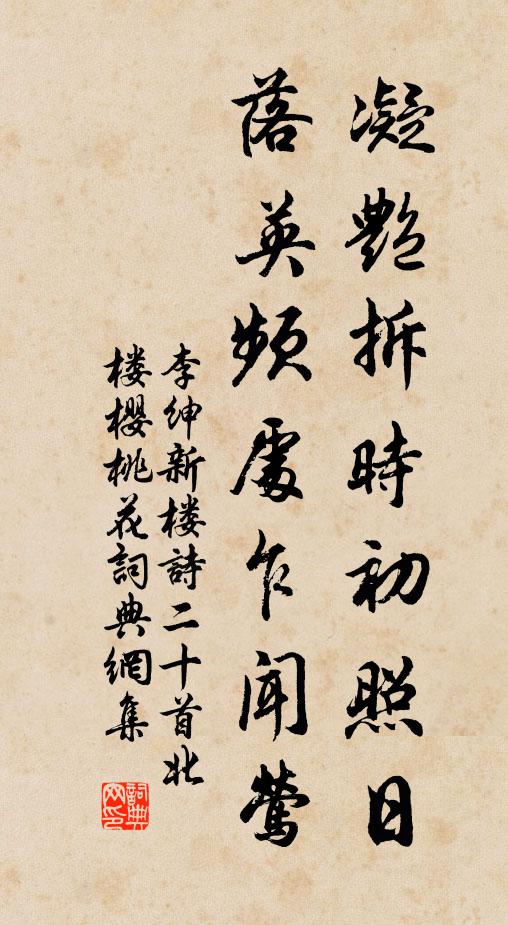 凝艷拆時初照日
落英頻處乍聞鶯
李紳新楼詩二十首北
楼櫻桃花詞典網集
詞典网印